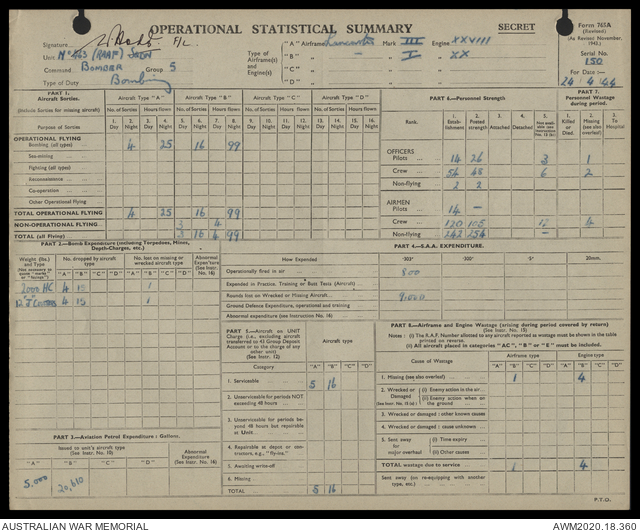 OPERATIONAL STATISTICAL SUMMARY
SECRET
Form 765A
(Revised)
(As Revised November, 1942.)
Serial No.
150
For Date :—
24.4.44
Signature F/L.
Unit No 463 (RAAF) SQDN
Command BOMBER Group 5
Type of Duty Bombing
Type of Airframe(s) and Engine(s)
"A" Airframe Lancaster Mark III Engine XXVIII
"B" " — I " XX
"C"
"D"
PART 1.
Aircraft Sorties.
(Include Sorties for missing aircraft)
Aircraft Type "A" Aircraft Type "B" Aircraft Type "C" Aircraft Type "D"
No. of Sorties Hours flown No. of Sorties Hours flown No. of Sorties Hours flown No. of Sorties Hours flown
Purpose of Sorties
1. Day 2. Night 3. Day 4. Night 5. Day 6. Night 7. Day 8. Night 9. Day 10. Night 11. Day 12. Night 13. Day 14. Night 15. Day 16. Night
OPERATIONAL FLYING
Bombing (all types) ... 4 25 16 99
Sea-mining
Fighting (all types)
Reconnaissance
Co-operation
Other Operational Flying
TOTAL OPERATIONAL FLYING 4 25 16 99
NON-OPERATIONAL FLYING 3 4
TOTAL (all Flying) 3 16 4 99
PART 6.—Personnel Strength
PART 7.
Personnel Wastage during period.
Rank.
1. Establishment 2. Posted strength 3. Attached 4. Detached
1. Killed or Died. 2. Missing (see also overleaf) 3. To Hospital
OFFICERS
Pilots 14 26 3 1
Crew 54 48 6 2
Non-flying 2 2
AIRMEN
Pilots 14 —
Crew 120 105 12 4
Non-flying 242 254 —
PART 2.—Bomb Expenditure (including Torpedoes, Mines, Depth-Charges, etc.)
Weight (lbs.) and Type
No. dropped by aircraft type
No. lost on missing or wrecked aircraft type
Abnormal Expenditure (See Instr. No. 16)
"A" "B" "C" "D" "A" "B" "C" "D"
2000 HC 4 15 1
4 15 1
PART 4.—S.A.A. EXPENDITURE.
How Expended ·303" ·303" ·5" 20mm.
Operationally fired in air 800
Expended in Practice, Training or Butt Tests (Aircraft)
Rounds lost on Wrecked or Missing Aircraft 9,000
Ground Defence Expenditure, operational and training
Abnormal expenditure (see Instruction No. 16)
PART 5.—Aircraft on UNIT Charge (i.e., excluding transferred to 43 Group Deposit Account or to the charge of any other unit)
(See Instr. No. 12)
Aircraft type
Category "A" "B" "C" "D"
1. Serviceable 5 16
2. Unserviceable for periods NOT exceeding 48 hours
3. Unserviceable for periods beyond 48 hours but repairable at Unit
4. Repairable at depot or contractors, e.g., "fly-ins."
5. Awaiting write-off
6. Missing
TOTAL 5 16
PART 8.—Airframe and Engine Wastage (arising during period covered by return)
(See Instr. No. 15)
Notes : (i) The R.A.F. Number allotted to any aircraft reported as wastage must be shown in the table printed on reverse.
(ii) All aircraft placed in categories "AC", "B" or "E" must be included.
Cause of Wastage
Airframe type Engine type
"A" "B" "C" "D" "A" "B" "C" "D"
1. Missing (see also overleaf) 1 4
2. Wrecked or Damaged (See Instr. No. 15 (e))
(i) Enemy action in the air
(ii) Enemy action when on the ground
3. Wrecked or damaged : other known causes
4. Wrecked or damaged : cause unknown
5. Sent away for major overhaul
(i) Time expiry
(ii) Other causes
TOTAL wastage due to service 1 4
Sent away (on re-equipping with another type, etc.)
PART 3.—Aviation Petrol Expenditure : Gallons.
Issued to unit's aircraft type (See Instr. No. 10)
Abnormal Expenditure (See Instr. No. 16)
"A" "B" "C" "D"
5,000 20,610
P.T.O.
AUSTRALIAN WAR MEMORIAL
AWM2020.18.360